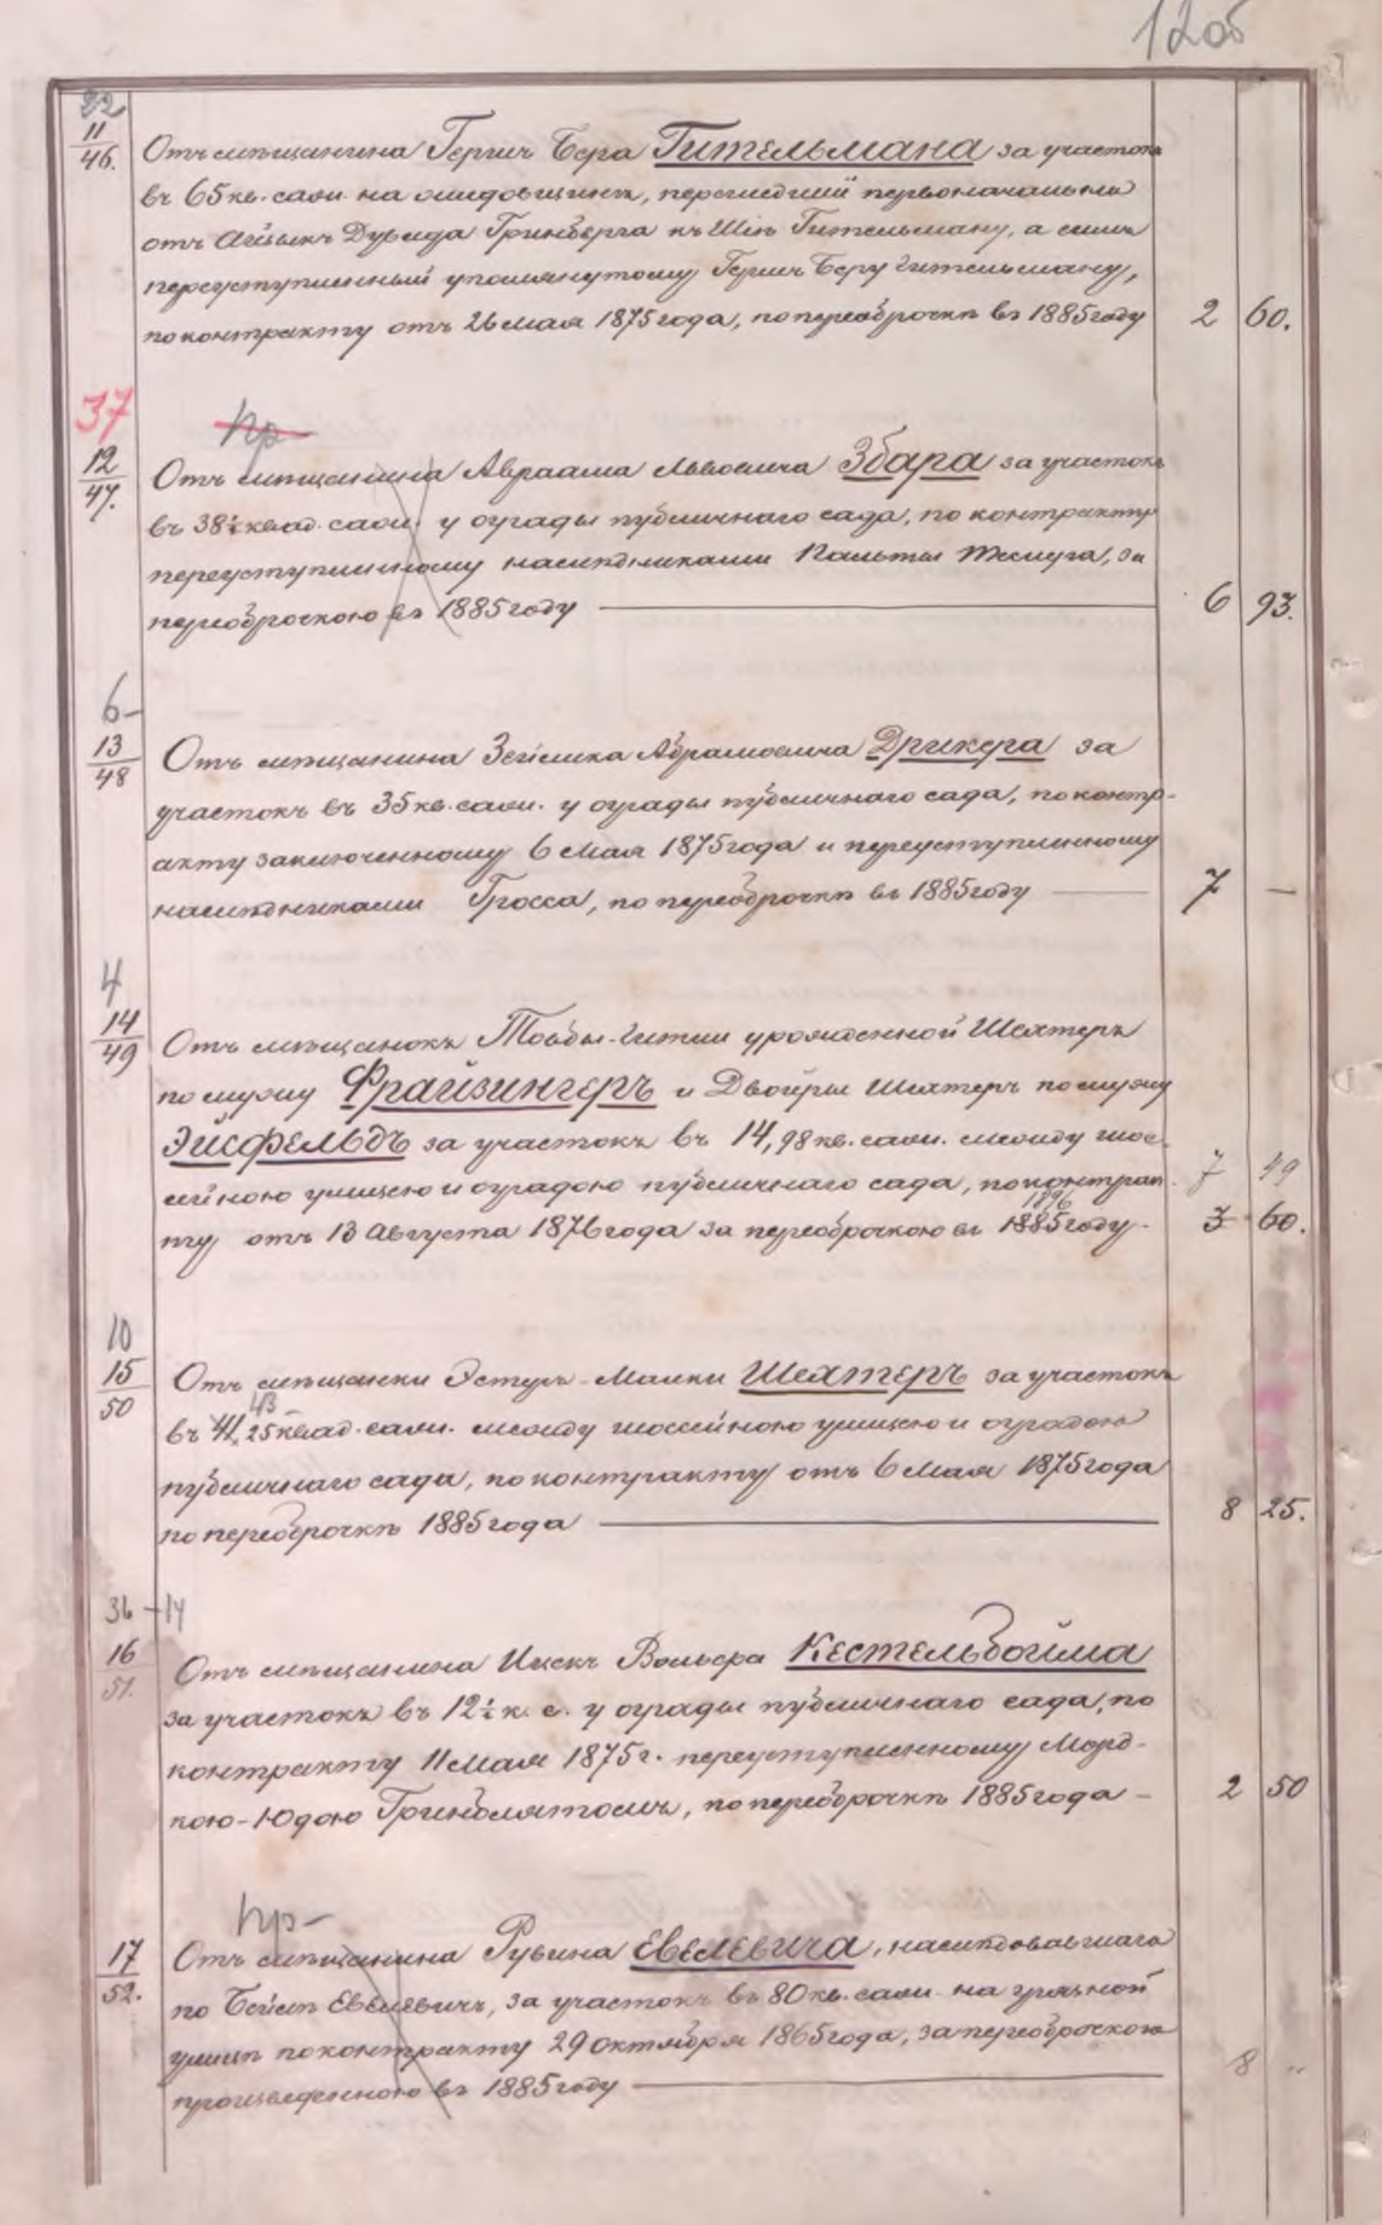 12об
22
11
46.
Отъ мѣщанина Гершъ Бера Гительмана за участокъ
въ 65 кв. саж. на
отъ Айзыкъ Дувида Гринберга къ Гительману, а симъ
переуступленный упомянутому Гершъ Беру Гительману,
по контракту отъ 26 Мая 1875 года, по переоброчкѣ въ 1885 году
2 60.
37
пр
12
47.
Отъ мѣщанина Авраама Львовича Збара за участокъ
въ 38½ квад. саж. у ограды публичнаго сада, по контракту
переуступленному наслѣдниками за
переоброчкою въ 1885 году
6 93.
6-
13
48
Отъ мѣщанина Зейлика Абрамовича Дрикера за
участокъ въ 35 кв. саж. у ограды публичнаго сада, по контр-
акту заключенному 6 Мая 1875 года и переуступленному
наслѣдниками Гросса, по переоброчкѣ въ 1885 году
7 —
4
14
49
Отъ мѣщанокъ Тойбы-Гитли урожденной Шехтеръ
по мужу Фрайзингеръ и Двойры Шехтеръ по мужу
Эйсфельдъ за участокъ въ 14,98 кв. саж. между шос-
сейною улицею и оградою публичнаго сада, по контрак-
7 49
1896
ту отъ 13 Августа 1876 года за переоброчкою въ 1885 году -
3 60.
10
15
50
Отъ мѣщанки Эстеръ-Малки Шехтеръ за участокъ
43
въ 41,25 квад. саж. между шоссейною улицею и оградою
публичнаго сада, по контракту отъ 6 Мая 1875 года
по переоброчкѣ 1885 года
8 25.
36 - 14
16
51.
Отъ мѣщанина Ицекъ Вольфа Кестельбойма
за участокъ въ 12½ к. с. у ограды публичнаго сада, по
контракту 11 Мая 1875 г. переуступленному Морд-
кою-Юдою Гринблятомъ, по переоброчкѣ 1885 года -
2 50
пр-
17
52.
Отъ мѣщанина Рувина Евелевича, наслѣдовавшаго
по Бейлѣ Евелевичъ, за участокъ въ 80 кв. саж. на грязной
улицѣ по контракту 29 Октября 1865 года, за переоброчкою
произведенною въ 1885 году
8 "